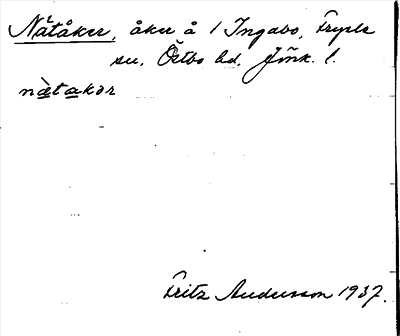 Nätåker, åker å 1 Ingabo, Fryele
sn. Östbo hd. Jönk. l.
nätakər
Fritz Andersson 1937.